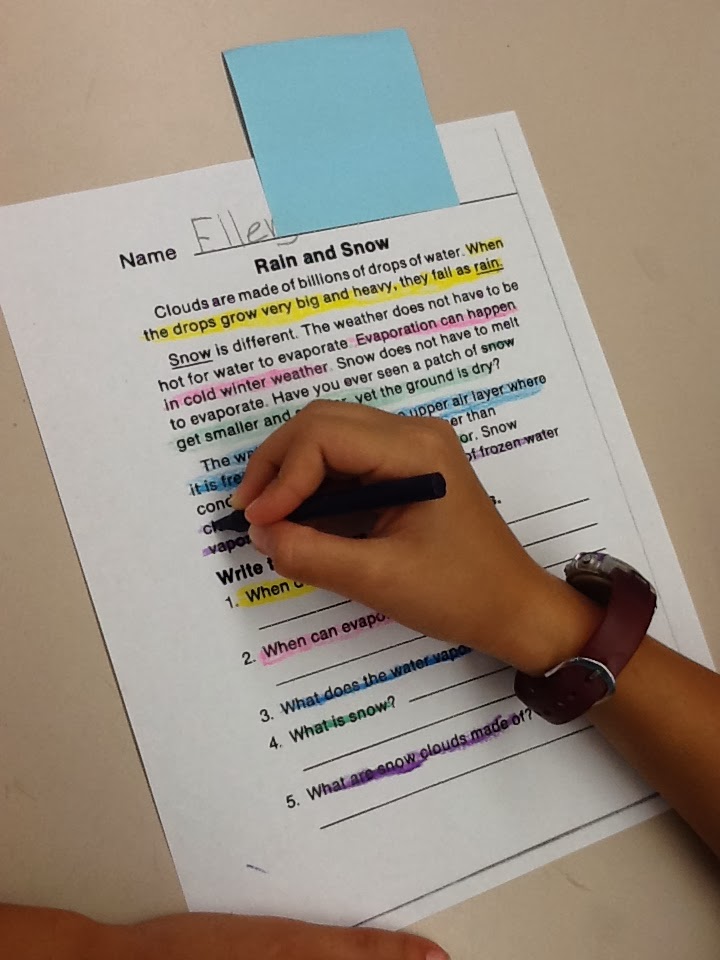 Name Ellery
Rain and Snow
Clouds are made of billions of drops of water. When
the drops grow very big and heavy, they fall as rain.
Snow is different. The weather does not have to be
hot for water to evaporate. Evaporation can happen
in cold winter weather. Snow does not have to melt
to evaporate. Have you ever seen a patch of snow
get smaller and yet the ground is dry?
The upper air layer where
it is than
or. Snow
of frozen water
Write
1. When
2. When can
3. What does the water
4. What is snow?
5. What are snow clouds made of?